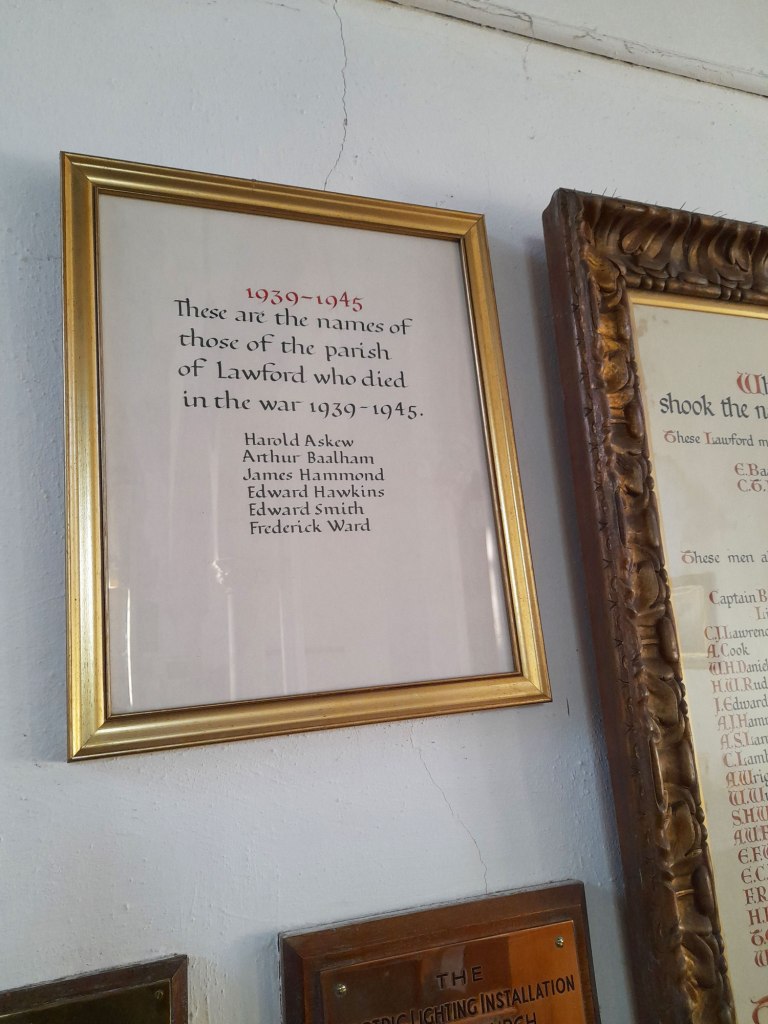 1939-1945
These are the names of
those of the parish
of Lawford who died
in the war 1939-1945.
Harold Askew
Arthur Baalham
James Hammond
Edward Hawkins
Edward Smith
Frederick Ward
shook the
These Lawford
These men
Captain
C.J.Lawrenc
A.Cook
W.H.Daniel
H.W.Rud
J.Edward
A.J.Ham
A.S.Lan
C.Lamb
A.Wrig
THE
LIGHTING INSTALLATION